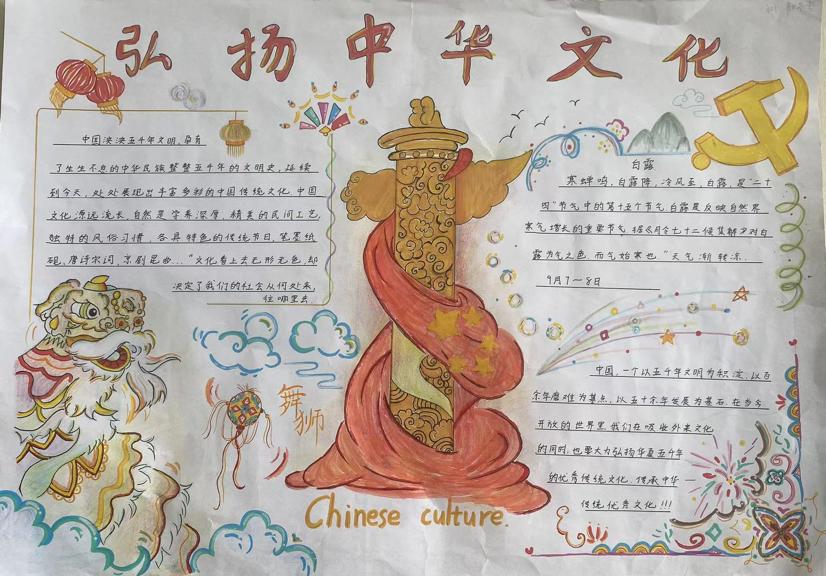 弘扬中华文化
中国泱泱五千年文明,孕育
了生生不息的中华民族整整五千年的文明史,延续
到今天,处处展现出丰富多彩的中国传统文化.中国
文化源远流长,自然是学养深厚,精美的民间工艺,
独特的风俗习惯,各具特色的传统节日,笔墨纸
砚,唐诗宋词,京剧昆曲..."文化看上去无形无色,却
决定了我们的社会从何处来,
往哪里去
舞狮
Chinese culture.
白露
寒蝉鸣,白露降,冷风至,白露,是"二十
四"节气中的第十五个节气,白露是反映自然界
寒气增长的重要节气.据《月令七十二候集解》对白
露为气之色,而气始寒也"天气渐转凉.
9月7-8日
中国,一个以五千年文明为积淀,以百
余年磨难为基点,以五十余年发展为基石.在当今
开放的世界里.我们在吸收外来文化
的同时,也要大力弘扬华夏五千年
的优秀传统文化.传承中华一
传统优秀文化!!!